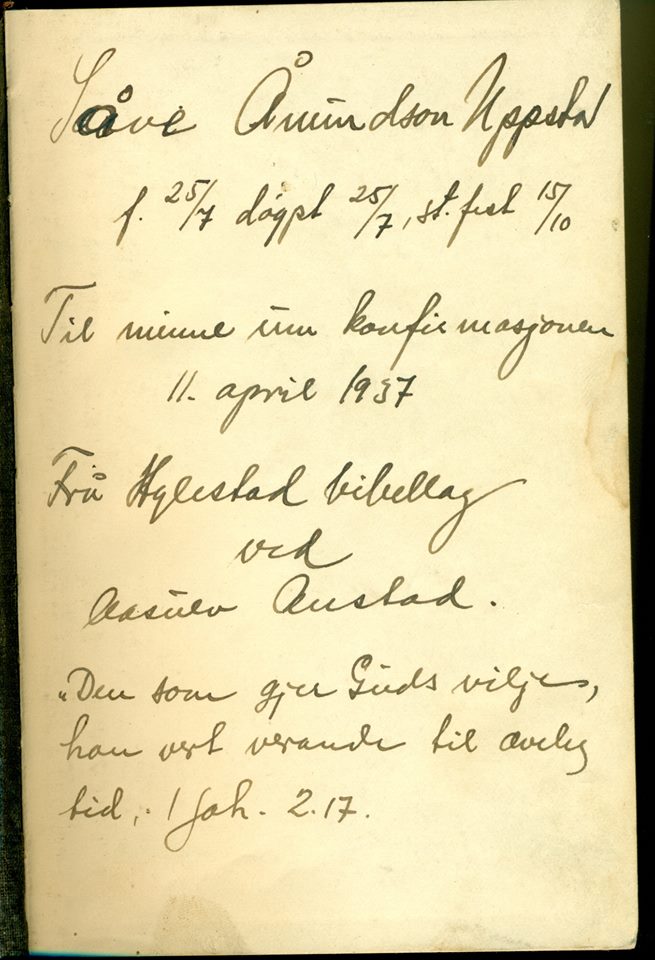 Såve Åmundson Uppstad
f. 25/7 døypt 25/7, st. fest 15/10
Til minne um konfirmasjonen
11. april 1937
Frå Hylestad bibellag
ved
Aasulv Austad.
„Den som gjer Guds vilje,
han vert verande til æveleg
tid,. 1 Joh. 2.17.